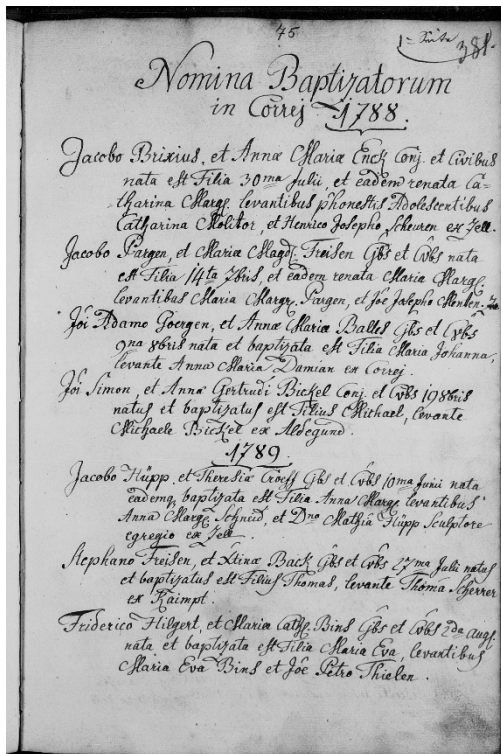 45
1= Seite 381.
Nomina Baptizatorum
in Correj 1788.
Jacobo Brixius, et Annæ Mariæ Enck Conj. et Civibus
nata est Filia 30ma Julii, et eadem renata Ca-
tharina Marg. levantibus phonestis Adolescentibus
Catharina Molitor, et Henrico Josepho Scheuren ex Zell.
Jacobo Pargen, et Mariæ Magd. Freisen Gbs et Cvbs nata
est Filia 14ta 7bris, et eadem renata Maria Marg.
levantibus Maria Margr. Pargen, et Jôe Josepho Menten
Jôi Adamo Goergen, et Annæ Mariæ Balles Gbs et Cvbs
9na 8bris nata et baptizata est Filia Maria Johanna,
levante Anna Maria Damian ex Correj.
Jôi Simon, et Annæ Gertrudi Bickel Conj. et Cvbs 19 8bris
natus et baptizatus est Filius Michael, levante
Michaele Bickel ex Aldegund.
1789.
Jacobo Hüpp, et Theresiæ Croeff Gbs et Cvbs 10ma Junii nata
eademq baptizata est Filia Anna Marg. levantibus
Anna Marg. Schneid, et Dno Mathia Hüpp Sculptore
egregio ex Zell.
Stephano Freisen, et Xtinæ Back Gbs et Cvbs 27ma Julii natus
et baptizatus est Filius Thomas, levante Thoma Scherrer
ex Kaimpt.
Friderico Hilgert, et Mariæ Cath. Bins Gbs et Cvbs 2da aug.
nata et baptizata est Filia Maria Eva, levantibus
Maria Eva Bins et Jôe Petro Thielen.